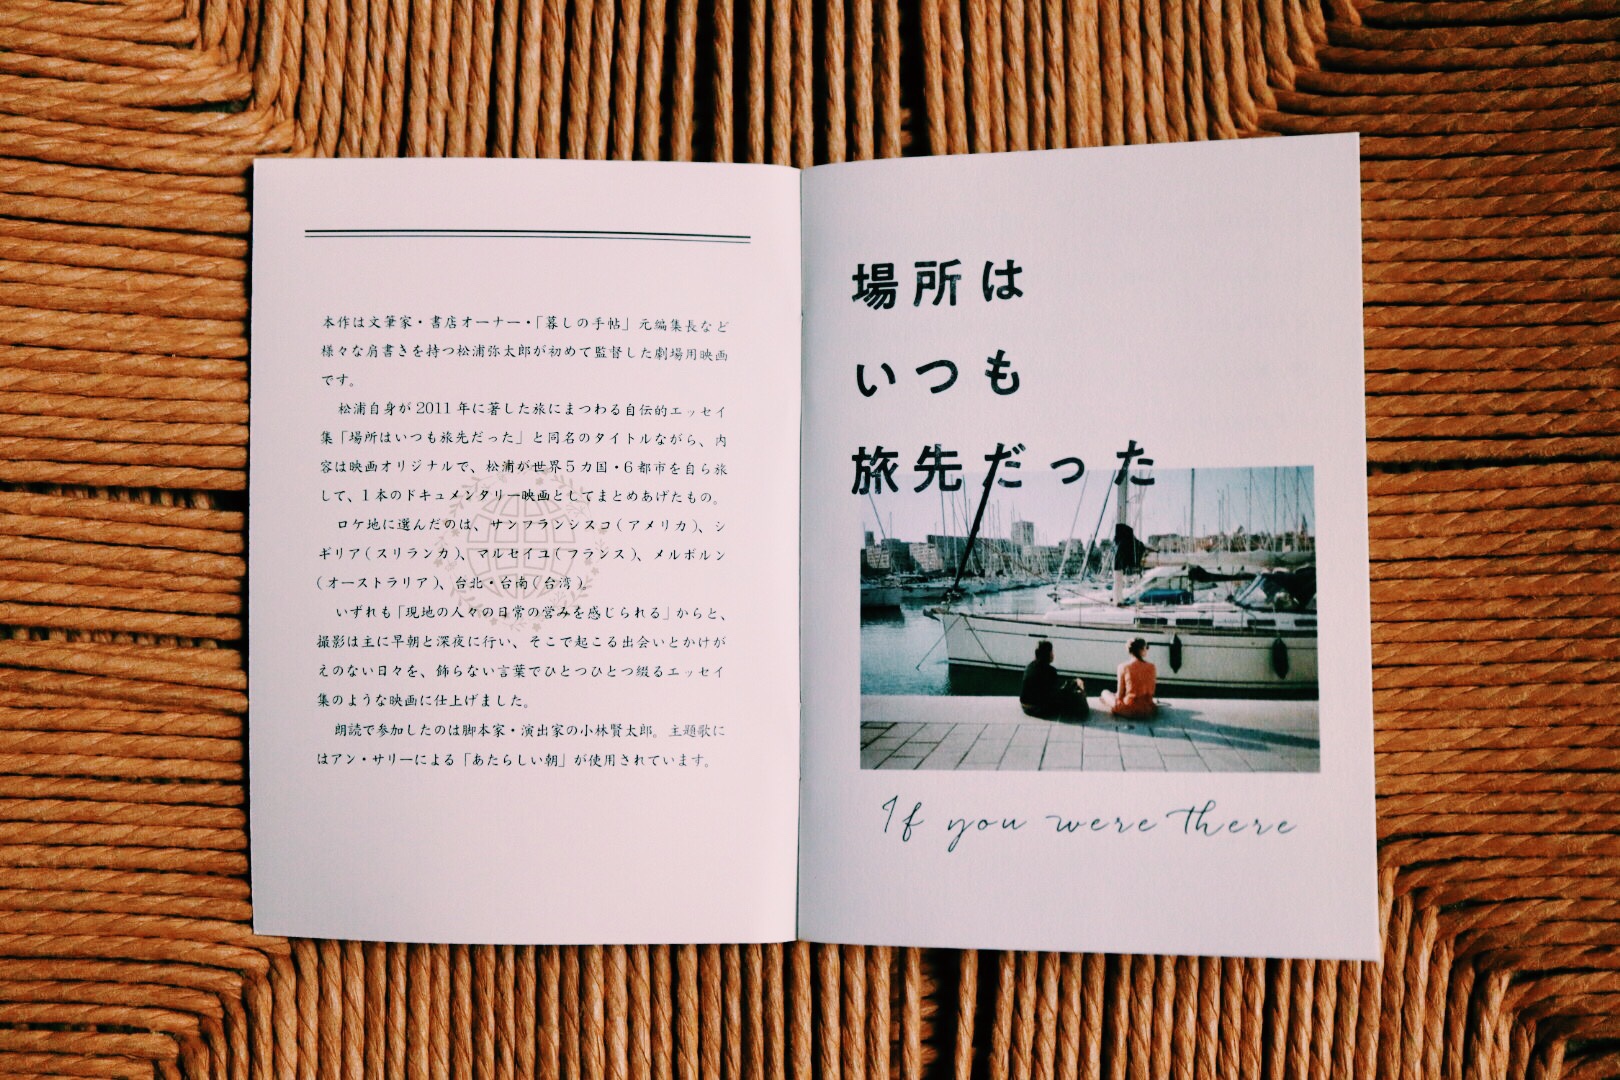 本作は文筆家・書店オーナー・「暮しの手帖」元編集長など
様々な肩書きを持つ松浦弥太郎が初めて監督した劇場用映画
です。
松浦自身が 2011 年に著した旅にまつわる自伝的エッセイ
集「場所はいつも旅先だった」と同名のタイトルながら、内
容は映画オリジナルで、松浦が世界5カ国・6都市を自ら旅
して、1本のドキュメンタリー映画としてまとめあげたもの。
ロケ地に選んだのは、サンフランシスコ(アメリカ)、シ
ギリア(スリランカ)、マルセイユ(フランス)、メルボルン
(オーストラリア)、台北・台南(台湾)。
いずれも「現地の人々の日常の営みを感じられる」からと、
撮影は主に早朝と深夜に行い、そこで起こる出会いとかけが
えのない日々を、飾らない言葉でひとつひとつ綴るエッセイ
集のような映画に仕上げました。
朗読で参加したのは脚本家・演出家の小林賢太郎。主題歌に
はアン・サリーによる「あたらしい朝」が使用されています。
場所は
いつも
旅先だった
If you were there